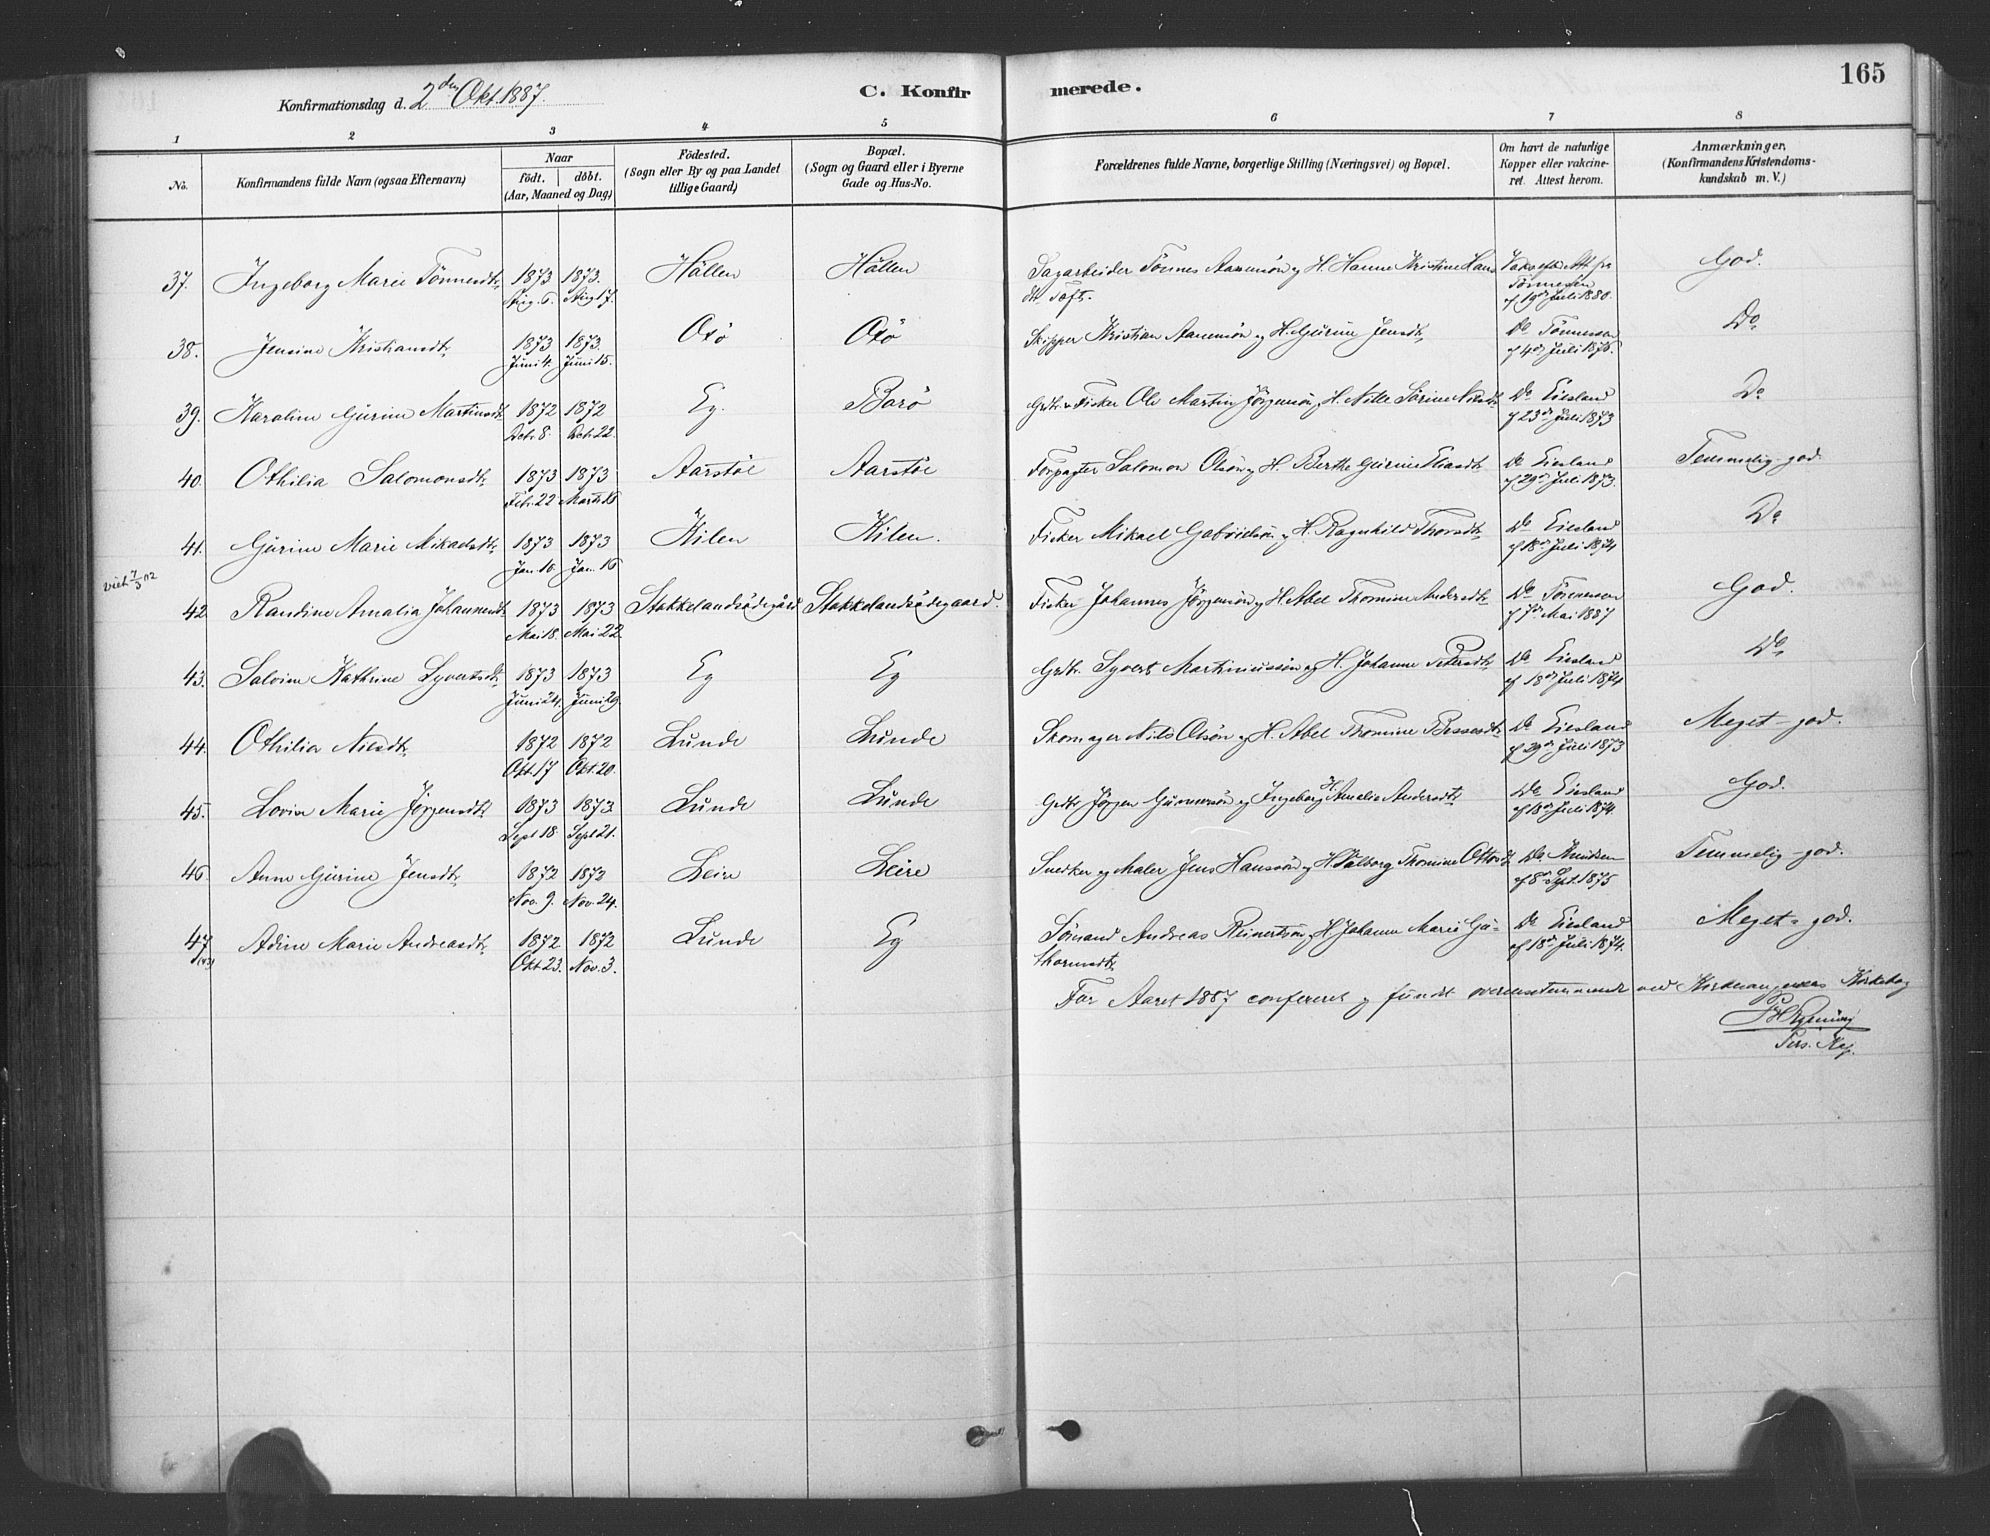 165
Konfirmationsdag d. 2den Okt. 1887.
C. Konfirmerede.
1 2 3 4 5 6 7 8
No.
Konfirmandens fulde Navn (ogsaa Efternavn)
Naar
födt. döbt.
(Aar, Maaned og Dag)
Födested.
(Sogn eller By og paa Landet
tillige Gaard)
Bopæl.
(Sogn og Gaard eller i Byerne
Gade og Hus-No.
Forældrenes fulde Navne, borgerlige Stilling (Næringsvei) og Bopæl.
Om havt de naturlige
Kopper eller vakcine-
ret. Attest herom.
Anmærkninger,
(Konfirmandens Kristendoms-
kundskab m. V.)
37. Ingeborg Marie Tönnesdtr 1873 Aug. 6. 1873. Aug 17. Hällen Hällen Sagarbeider Tönnes Aanensön og H. Hanne Kristine Hans
dtr Toft. Att. fra
Tönnesen
af 19de Juli 1880. God.
38. Jensine Kristiansdtr 1873 Juni 4. 1873. Juni 15. Oxö Oxö Skipper Kristian Aanensön og H. Gurine Jensdtr Do Tönnesen
af 4de Juli 1876. Do
39. Karoline Gurine Martinsdtr 1872 Dcb. 8. 1872 Dcb 22. Eg. Borö Grbr. & Fisker Ole Martin Jörgensön og H. Nille Sörine Nilsdtr Do Eiesland
af 23de Juli 1873 Do
40. Othilia Salomonsdtr 1873 Feb. 22 1873 Marts Aarstöl Aarstöl Forpagter Salomon Olsön og H. Berthe Gurine Do Eiesland
af 29de Juli 1873. Temmelig-god.
41. Gurine Marie Mikaelsdtr 1873 Jan. 10. 1873 Jan. 16 Kilen Kilen. Fisker Mikael Gabrielsön og H. Ragnhild Thorsdtr Do Eiesland
af 18de Juli 1874 Do
viet 7/3 92
42. Randine Amalia Johannesdtr 1873 Mai 18. 1873 Mai 22. Stakkelandsödegård Stakkelandsödegaard. Fisker Johannes Jörgensön og H. Abel Thomine Andersdtr Do Tönnesen
af 7de Mai 1887 God.
43. Salvine Kathrine Syvertsdtr 1873 Juni 24. 1873 Juni 29. Eg Eg Grbr. Syvert Martiniussön og H. Johanne Pedersdtr Do Eiesland
af 18de Juli 1874 Do
44. Othilia Nilsdtr 1872 Okt. 17 1872 Okt. 20. Lunde Lunde Skomager Nils Olsön og H. Abel Thomine Do Eiesland
af 29de Juli 1873 Meget-god.
45. Lovise Marie Jörgensdtr 1873 Sept 18. 1873. Sept 21. Lunde Lunde Grbr Jörgen Gunnersön og H. Ingeborg Amalie Andersdtr Do Eiesland
af 18de Juli 1874. God.
46. Anne Gurine Jensdtr 1872 Nov. 9. 1872. Nov. 24. Leire Leire Snedker og Maler Jens Hanssön og H. Valborg Thomine Ottosdtr Do Knudsen
af 8de Sept. 1875 Temmelig-god.
47 Adine Marie Andreasdtr 1872 Okt 23. 1872 Nov. 3. Lunde Eg Sömand Andreas Reinertsön og H Johanne Marie Gu-
thormsdtr Do Eiesland
af 18de Juli 1874. Meget-god.
For Aaret 1887 confereret og fundet overensstemmende med Kirkesangerens Kirkebog
Pers. Kap.